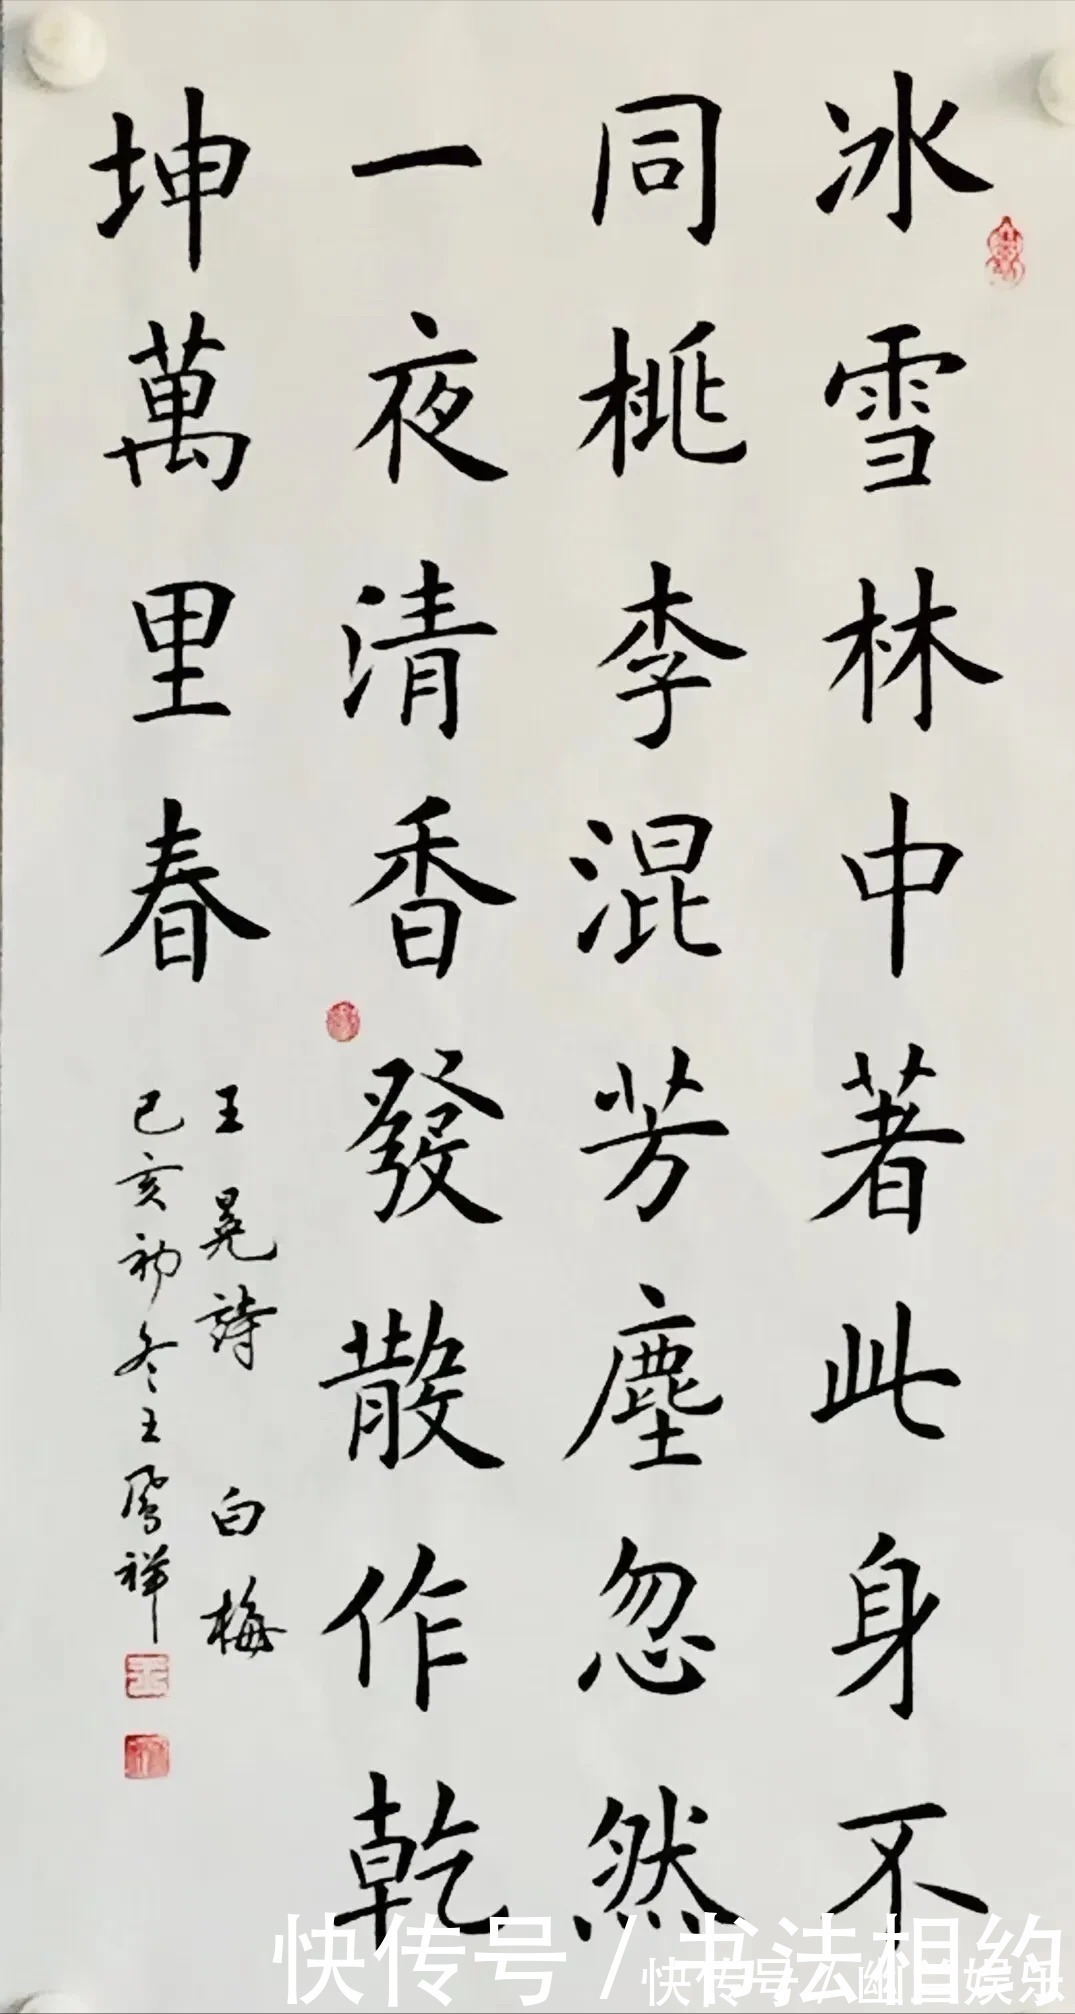 冰雪林中著此身不
同桃李混芳塵忽然
一夜清香發散作乾
坤萬里春
王冕詩 白梅
己亥初冬王鳳祥
快传号/书法相约
快传号/幽兰娱乐